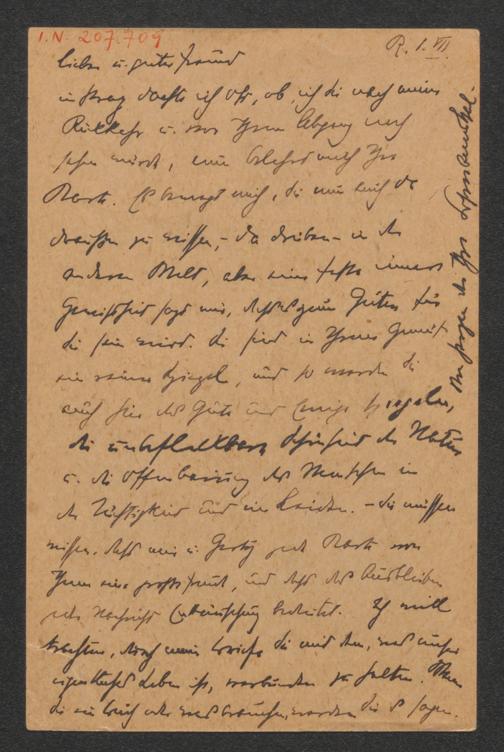 I.N. 207.709
R. 1. VII.
lieber u. guter Freund
in Prag dachte ich oft, ob ich Sie nach meiner
Rückkehr u. vor Ihrem Abgang noch
sehen würde, nun belehrt mich Ihre
Karte. Es bewegt mich, Sie nun auch da
draussen zu wissen, – da drüben – in der
anderen Welt, aber eine feste innere
Gewissheit sagt mir, dass es zum Guten für
Sie sein wird. Sie sind in Ihrem Gemüt
ein reiner Spiegel, und so werden Sie
auch hier das Gute und Ewige spiegeln,
die unbefleckbare Schönheit der Natur
u. die Offenbarung des Menschen in
der Tüchtigkeit und im Leiden. – Sie müssen
wissen, dass mir u. Gerty jede Karte von
Ihnen eine grosse Freude, und dass das Ausbleiben
jeder Nachricht Enttäuschung bedeutet. Ich will
trachten, durch meine Briefe Sie mit dem, was unser
eigentliches Leben ist, verbunden zu halten. Wenn
Sie ein Buch oder was brauchen, werden Sie es sagen.